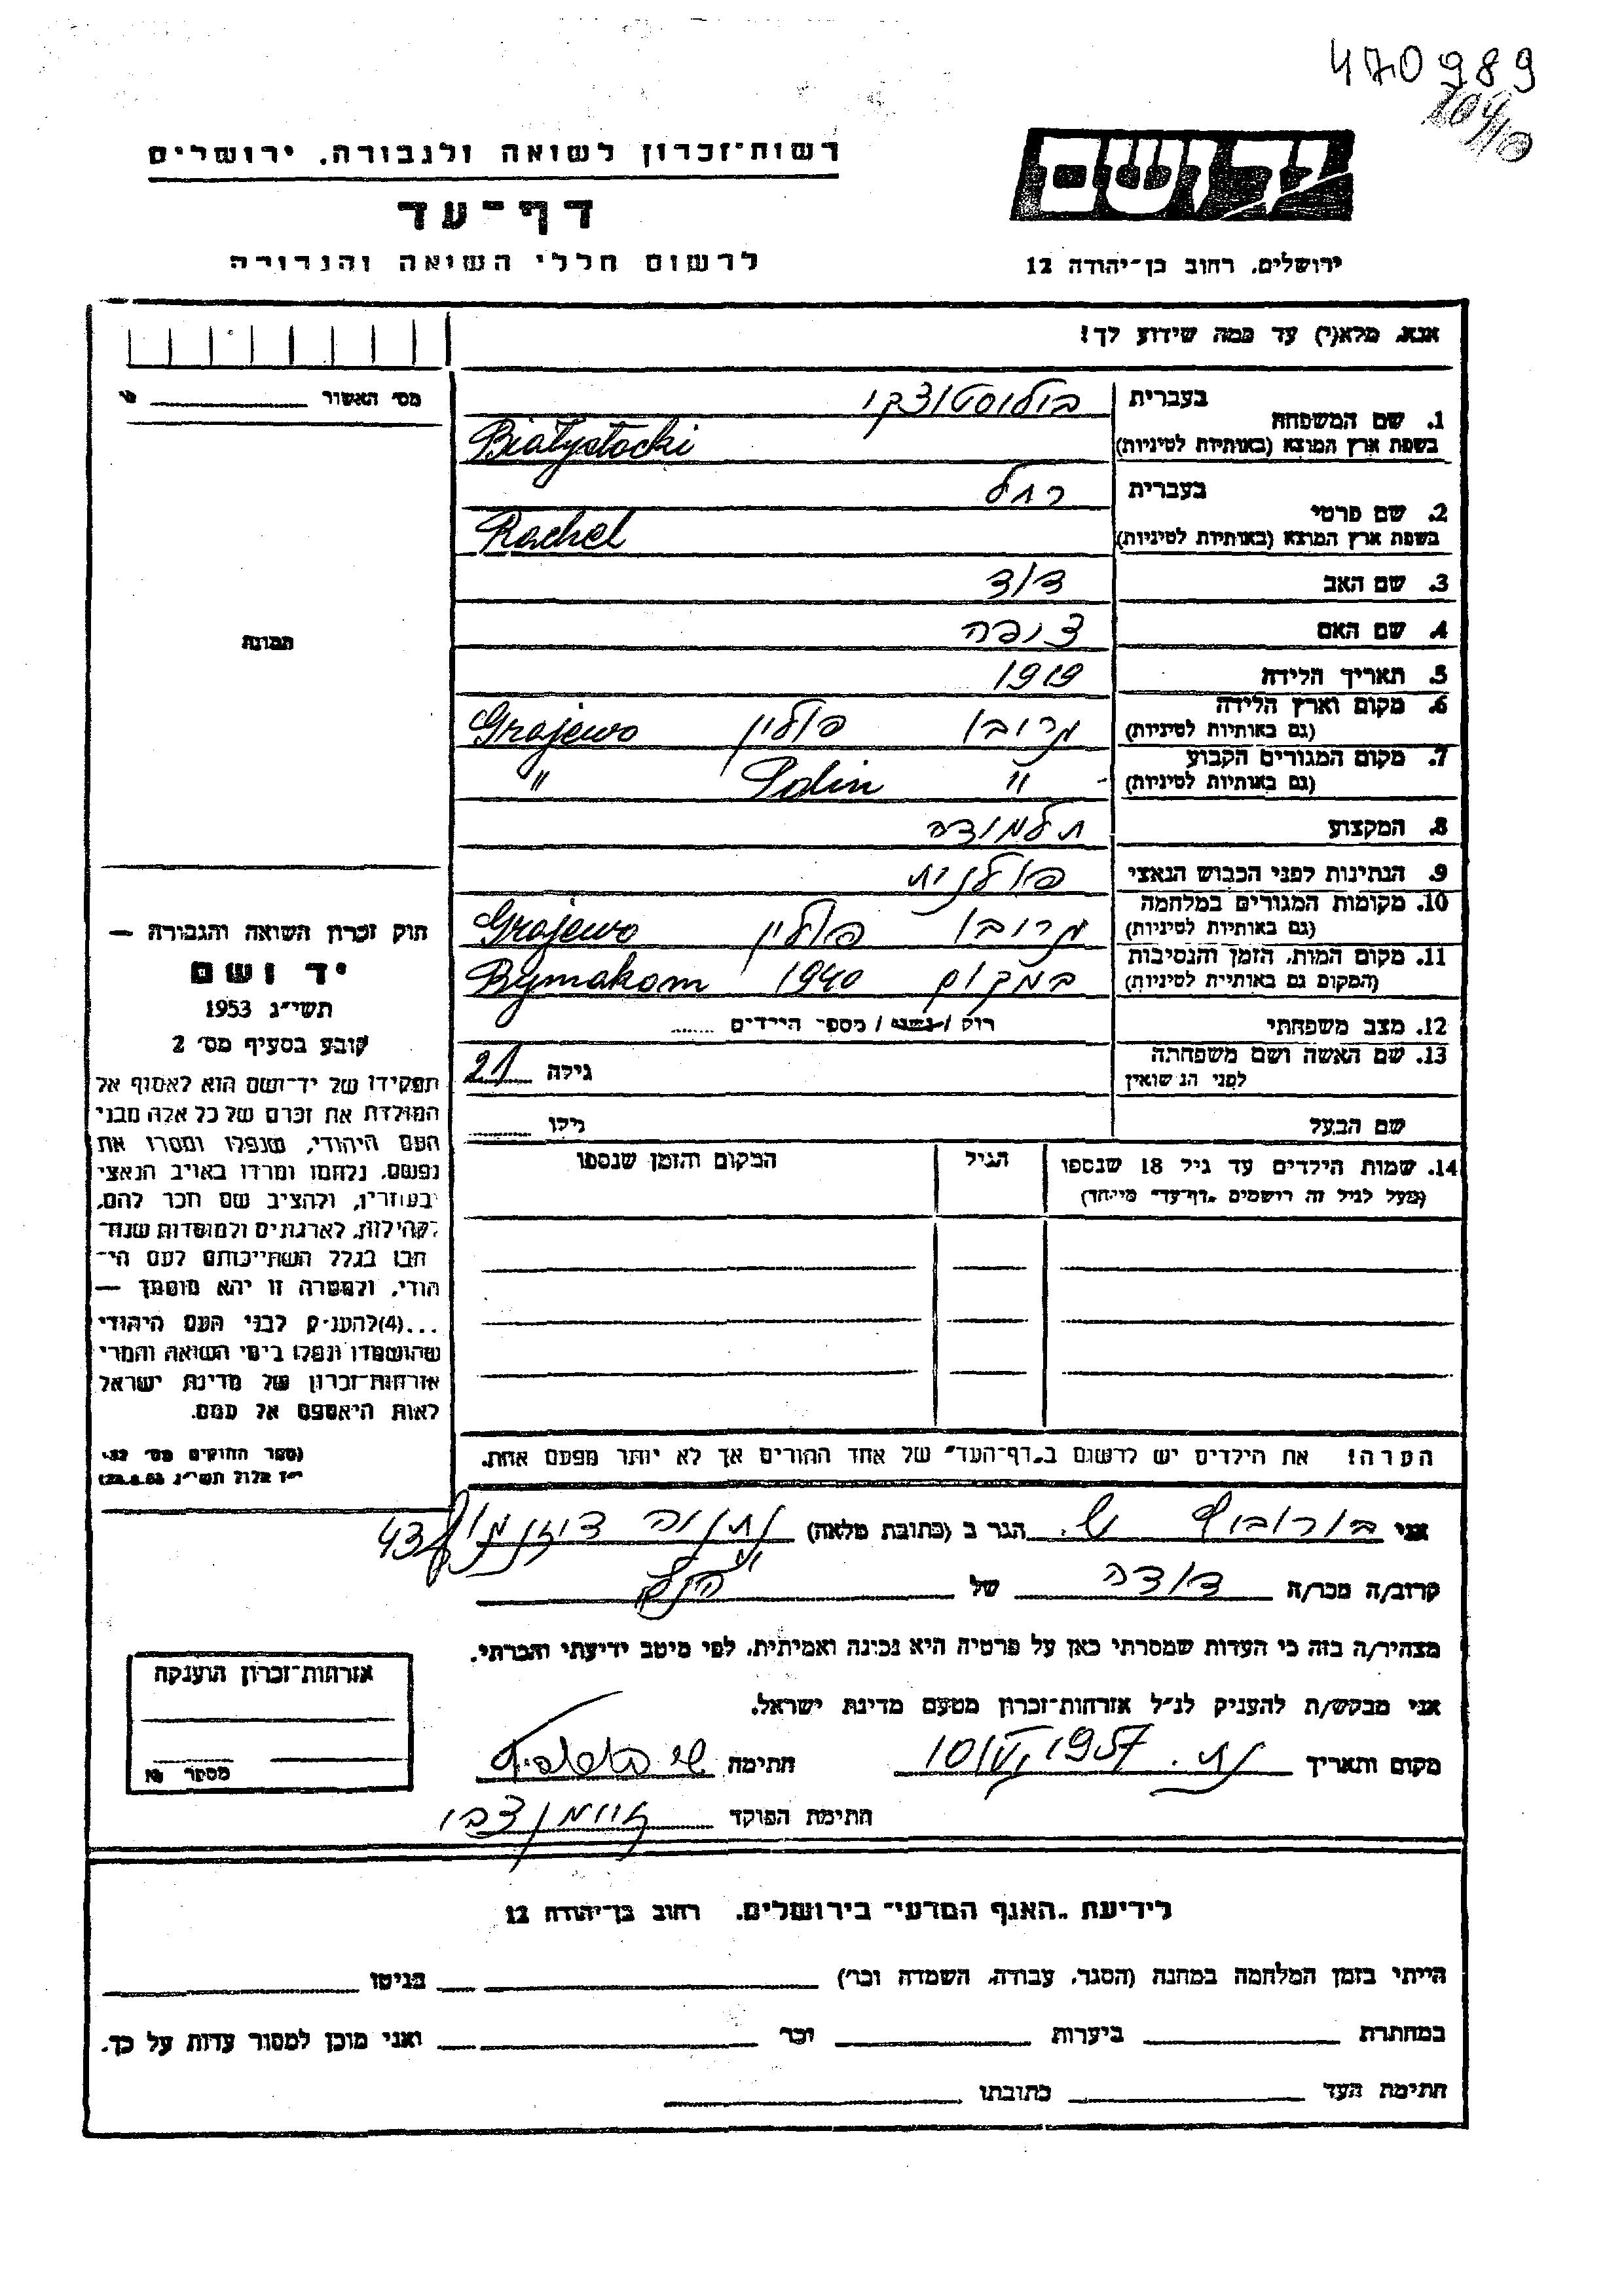 470989
רשות־זכרון לשואה ולגבורה, ירושלים
יד ושם
דף־עד
לרשום חללי השואה והגבורה
ירושלים, רחוב בן־יהודה 12
אנא, מלא(י) עד כמה שידוע לך!
מס׳ האשור
1. שם המשפחה
בעברית ביאליסטוצקי
בשפת ארץ המוצא (באותיות לטיניות) Białystocki
2. שם פרטי
בעברית רחל
בשפת ארץ המוצא (באותיות לטיניות) Rachel
3. שם האב דוד
4. שם האם ציפה
5. תאריך הלידה 1919
6. מקום וארץ הלידה גריבו פולין Grajewo
(גם באותיות לטיניות)
7. מקום המגורים הקבוע " Polin "
(גם באותיות לטיניות)
8. המקצוע תלמודה
9. הנתינות לפני הכבוש הנאצי פולנית
10. מקומות המגורים במלחמה גריבו פולין Grajewo
(גם באותיות לטיניות)
11. מקום המות, הזמן והנסיבות במקום 1940 Bymakom
(המקום גם באותיות לטיניות)
12. מצב משפחתי רוק / נשוי / מספר הילדים
13. שם האשה ושם משפחתה גילה 21
לפני הנישואין
שם הבעל גילו
14. שמות הילדים עד גיל 18 שנספו הגיל המקום והזמן שנספו
(מעל לגיל זה רושמים "דף־עד" מיוחד)
הערה! את הילדים יש לרשום ב"דף־העד" של אחד ההורים אך לא יותר מפעם אחת.
תמונה
חוק זכרון השואה והגבורה —
יד ושם
תשי״ג 1953
קובע בסעיף מס׳ 2
תפקידו של יד־ושם הוא לאסוף אל
המולדת את זכרם של כל אלה מבני
העם היהודי, שנפלו ומסרו את
נפשם, נלחמו ומרדו באויב הנאצי
ובעוזריו, ולהציב שם וזכר להם,
לקהילות, לארגונים ולמוסדות שנח־
רבו בגלל השתייכותם לעם הי־
הודי, ולמטרה זו יהא מוסמך —
...(4)להעניק לבני העם היהודי
שהושמדו ונפלו בימי השואה והמרי
אזרחות־זכרון של מדינת ישראל
לאות היאספם אל עמם.
(ספר החוקים מס׳ 132,
י״ז אלול תשי״ג 28.8.53)
אני בורוביץ ש. הגר ב (כתובת מלאה) נתניה דיזנגוף 43
קרוב/ה מכר/ה דודה של
מצהיר/ה בזה כי העדות שמסרתי כאן על פרטיה היא נכונה ואמיתית, לפי מיטב ידיעתי והכרתי.
אני מבקש/ת להעניק לנ״ל אזרחות־זכרון מטעם מדינת ישראל.
מקום ותאריך נת. 1957 חתימה
חתימת הפוקד צבי
אזרחות־זכרון הוענקה
מספר
לידיעת "האגף המדעי" בירושלים, רחוב בן־יהודה 12
הייתי בזמן המלחמה במחנה (הסגר, עבודה, השמדה וכו׳) בגיטו
במחתרת ביערות וכו׳ ואני מוכן למסור עדות על כך.
חתימת העד כתובתו